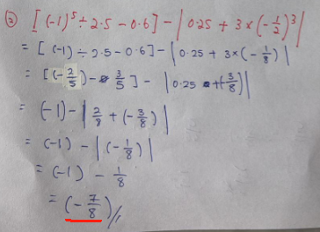 ② [(-1)⁵ ÷ 2.5 - 0.6] - |0.25 + 3 × (-½)³|
= [(-1) ÷ 2.5 - 0.6] - |0.25 + 3 × (-⅛)|
= [(-2/5) - 3/5] - |0.25 + (-3/8)|
= (-1) - |2/8 + (-3/8)|
= (-1) - |(-1/8)|
= (-1) - 1/8
= (-7/8)//